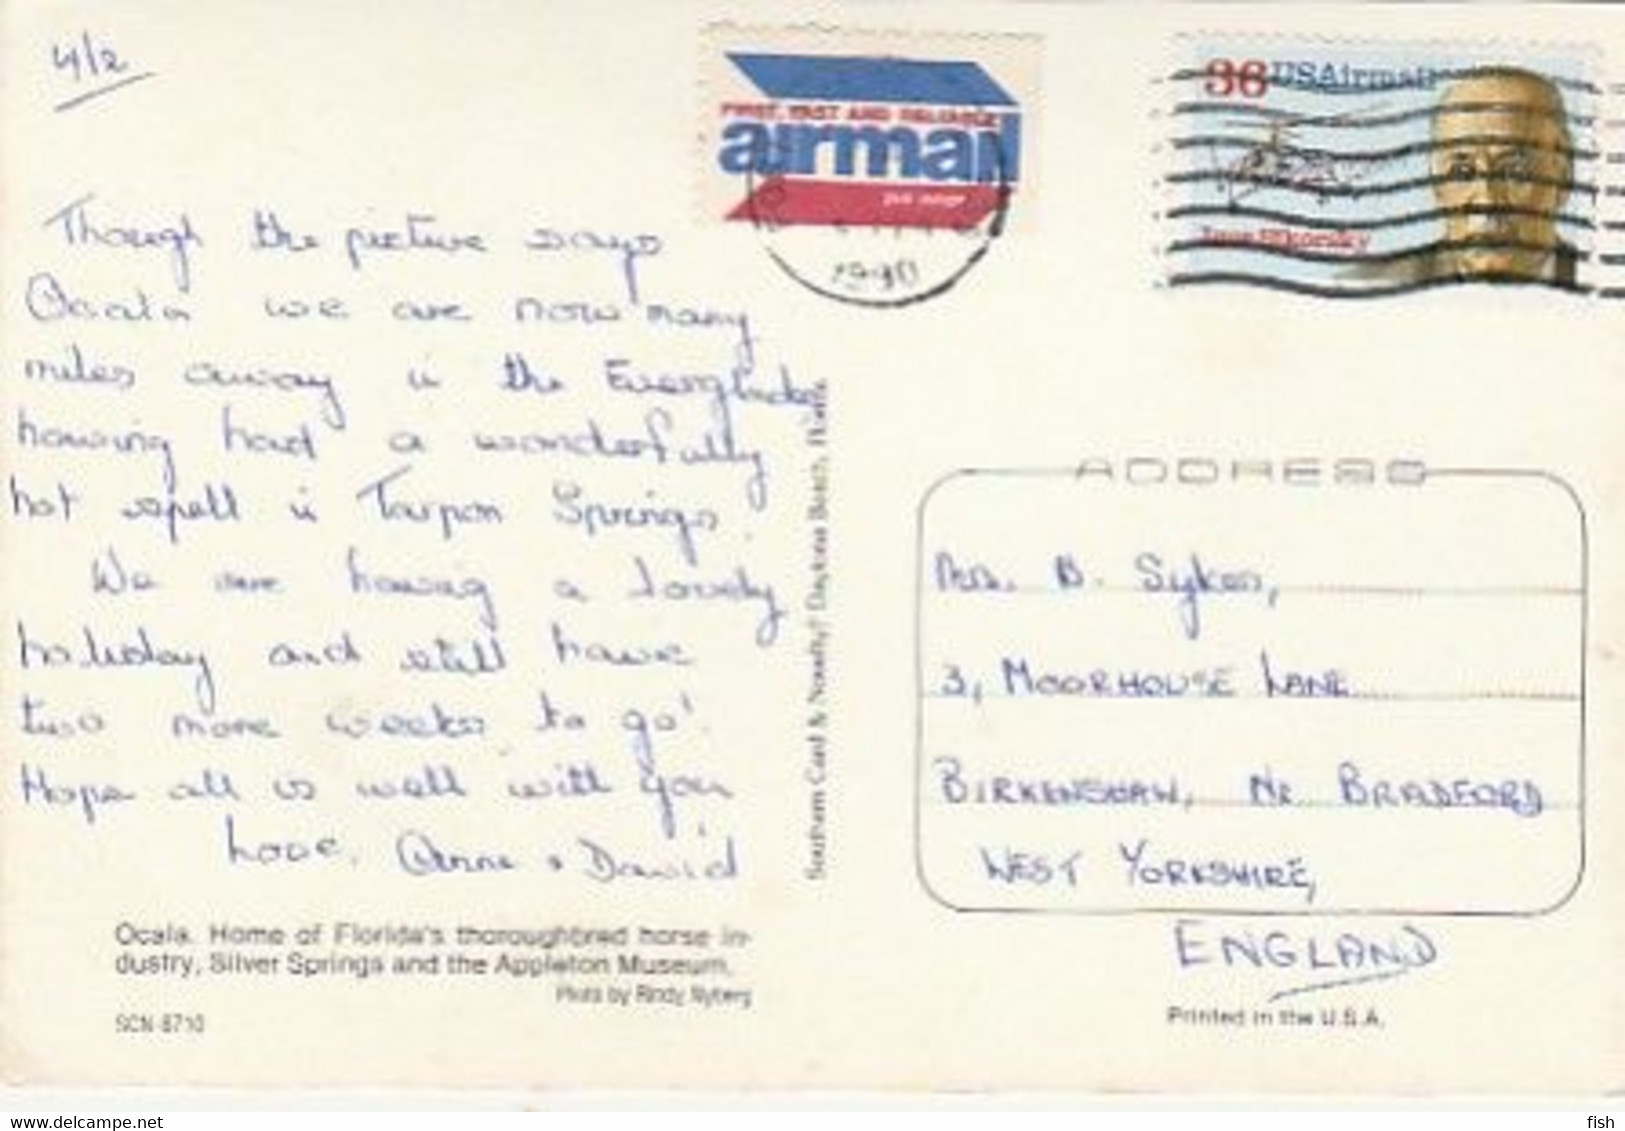 4/2
FIRST, FAST AND RELIABLE
airmail
1990
36 USAirmail
Igor Sikorsky
Though the picture says
Ocala we are now many
miles away in the Everglades
having had a wonderfully
hot spell in Tarpon Springs.
We are having a lovely
holiday and still have
two more weeks to go!
Hope all is well with you
Love, Anne + David
Ocala. Home of Florida's thoroughbred horse in-
dustry, Silver Springs and the Appleton Museum.
Photo by Rindy Nyberg
SCN-8710
Southern Card & Novelty, Daytona Beach, Florida
ADDRESS
Mrs. B. Sykes,
3, MOORHOUSE LANE
BIRKENSHAW, NR BRADFORD
WEST YORKSHIRE,
ENGLAND
Printed in the U.S.A.
fish